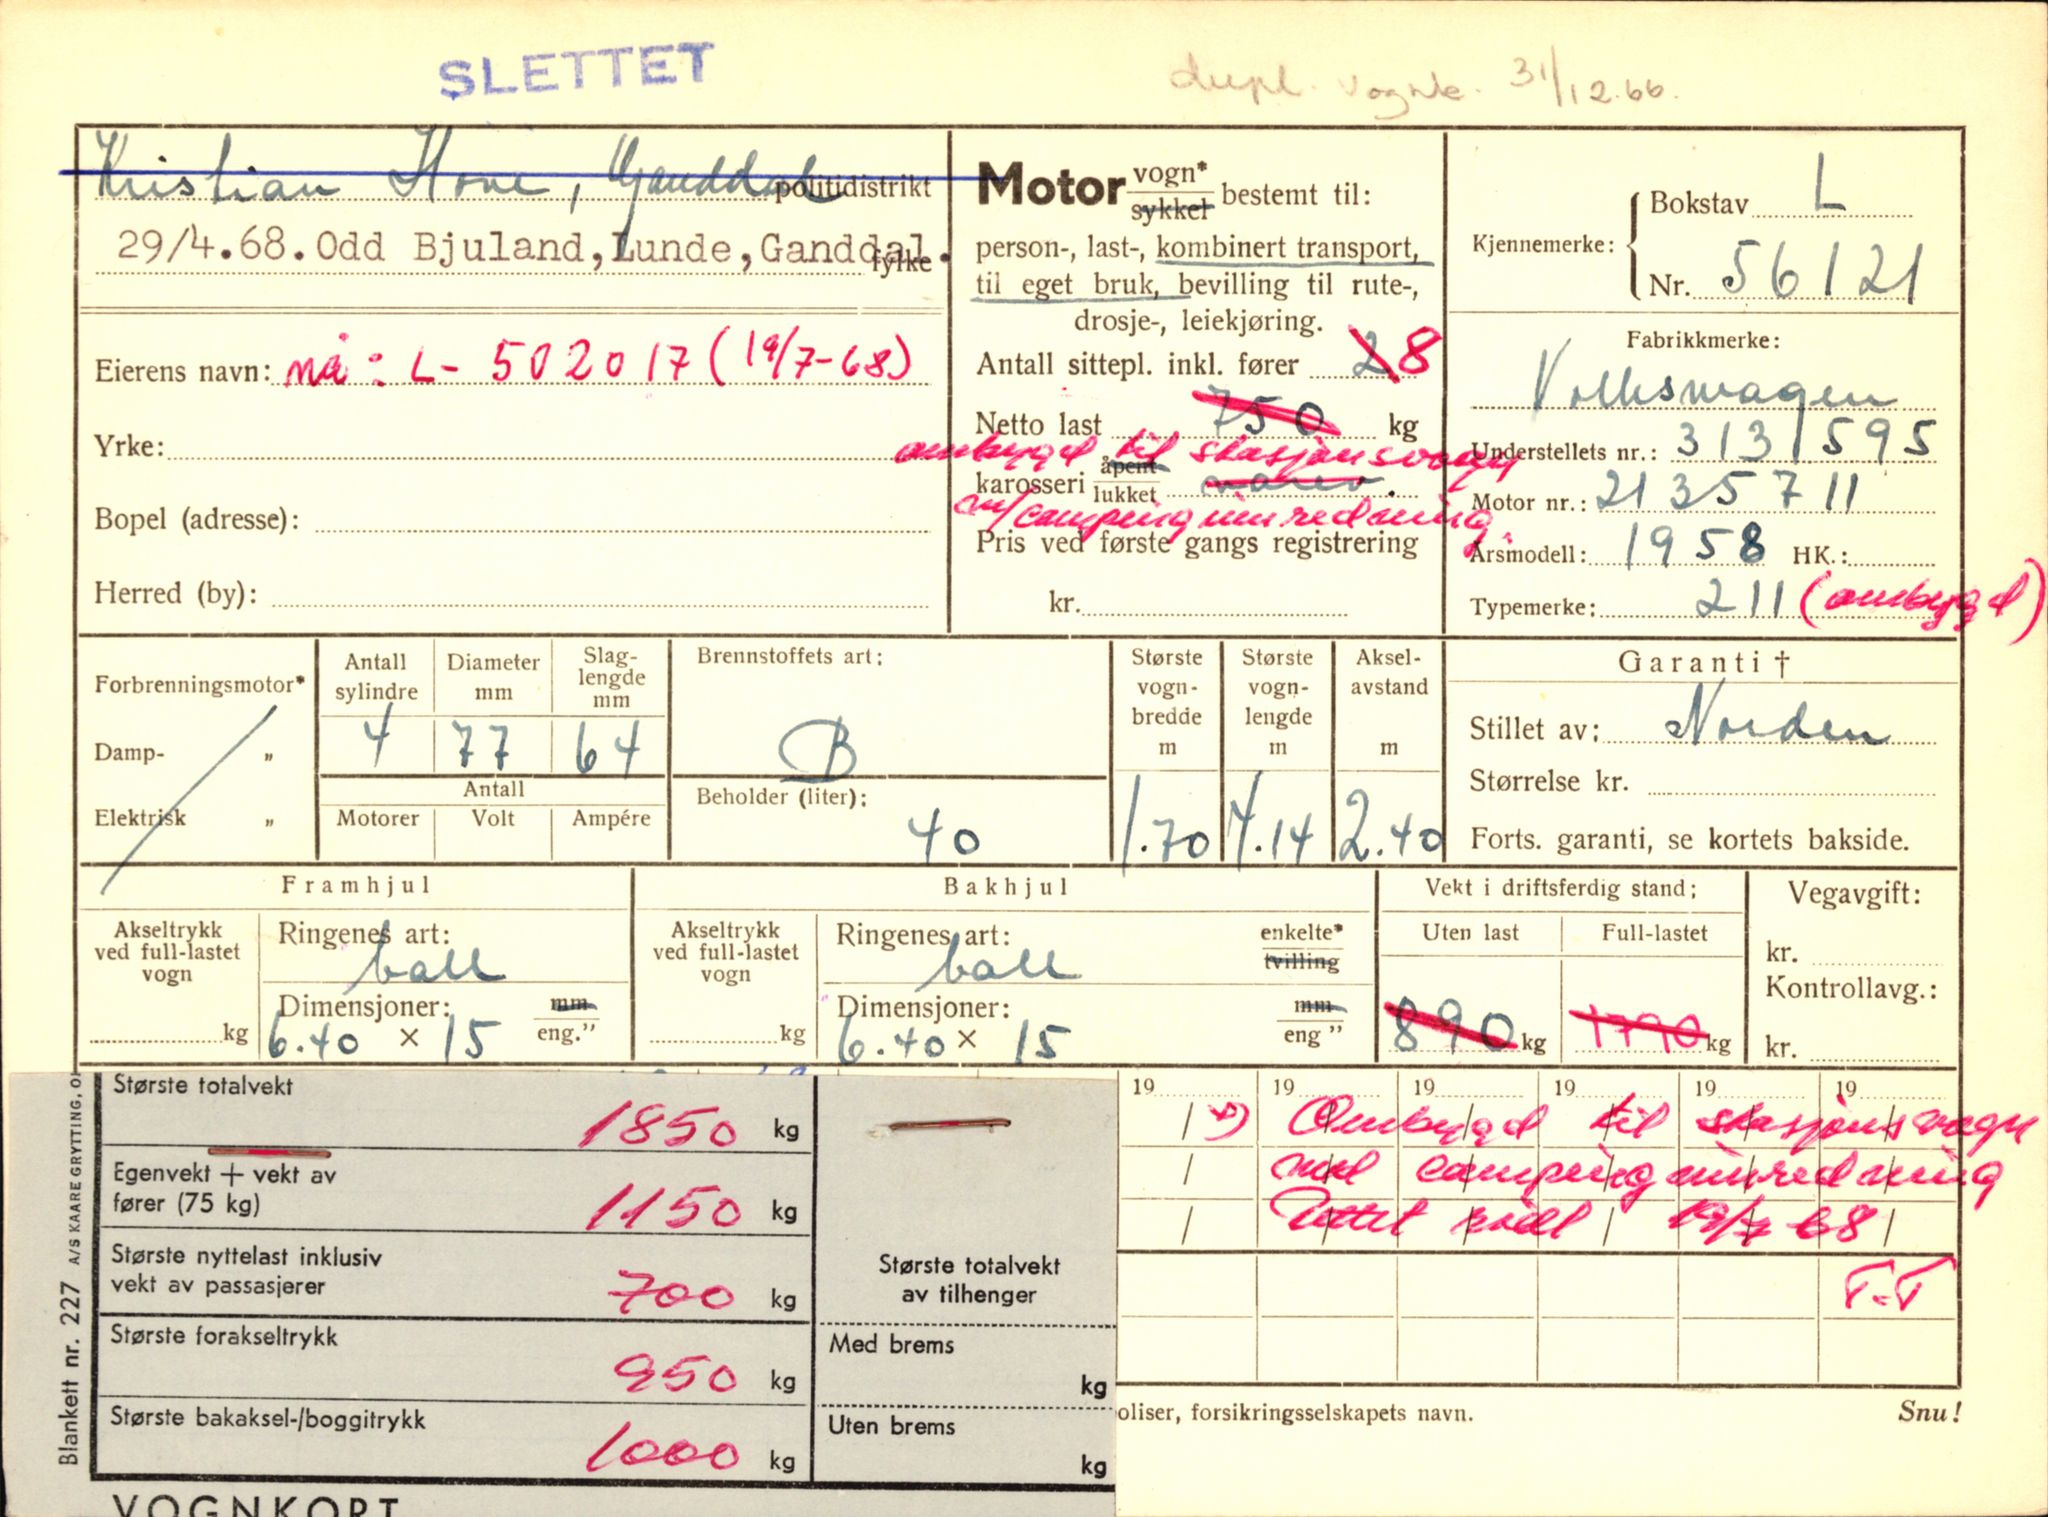 SLETTET
dupl. vognk. 31/12.66.
Kristian Hove, Ganddal politidistrikt
29/4.68. Odd Bjuland, Lunde, Ganddal. fylke
Eierens navn: nå: L- 502017 (19/7-68)
Yrke:
Bopel (adresse):
Herred (by):
Motor vogn* sykkel bestemt til:
person-, last-, kombinert transport,
til eget bruk, bevilling til rute-,
drosje-, leiekjøring.
Antall sittepl. inkl. fører 2 8
Netto last 750 kg
ombygd til stasjonsvogn
karosseri åpent lukket varev.
m/campinginnredning
Pris ved første gangs registrering
kr.
Kjennemerke: Bokstav L
Nr. 56121
Fabrikkmerke:
Volkswagen
Understellets nr.: 3131595
Motor nr.: 2135711
Årsmodell: 1958 HK.:
Typemerke: 211 (ombygd)
Forbrenningsmotor*
Damp- "
Elektrisk "
Antall sylindre 4
Diameter mm 77
Slag-lengde mm 64
Antall
Motorer Volt Ampére
Brennstoffets art: B
Beholder (liter): 40
Største vogn-bredde m 1.70
Største vogn-lengde m 4.14
Aksel-avstand m 2.40
Garanti †
Stillet av: Norden
Størrelse kr.
Forts. garanti, se kortets bakside.
Framhjul
Akseltrykk ved full-lastet vogn kg
Ringenes art: ball
Dimensjoner: mm
6.40 × 15 eng."
Bakhjul
Akseltrykk ved full-lastet vogn kg
Ringenes art: ball enkelte* tvilling
Dimensjoner: mm
6.40 × 15 eng "
Vekt i driftsferdig stand:
Uten last Full-lastet
890 kg 1790 kg
Vegavgift:
kr.
Kontrollavg.:
kr.
Største totalvekt 1850 kg
Egenvekt + vekt av
fører (75 kg) 1150 kg
Største nyttelast inklusiv
vekt av passasjerer 700 kg
Største forakseltrykk 950 kg
Største bakaksel-/boggitrykk 1000 kg
Største totalvekt
av tilhenger
Med brems kg
Uten brems kg
Blankett nr. 227 A/S KAARE GRYTTING, O
VOGNKORT
19 19 19 19 19 19
x) Ombygd til stasjonsvogn
med campinginnredning
19/7 68
T.T
oliser, forsikringsselskapets navn.
Snu!